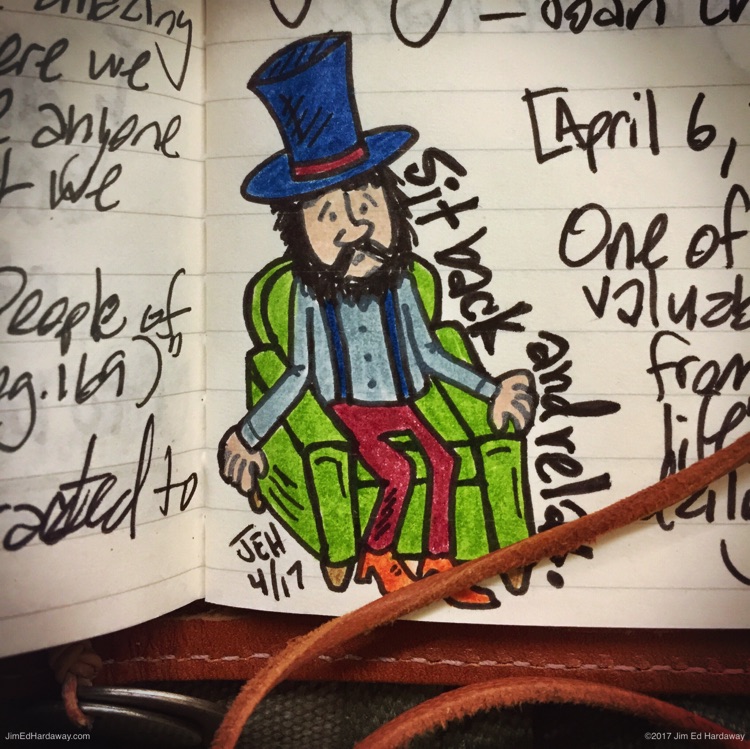 amazing
ere we
anyone
we
People of
pg.169)"
acted to
Sit back and relax.
JEH
4/17
[April 6,
One of
valuab
from
JimEdHardaway.com
©2017 Jim Ed Hardaway